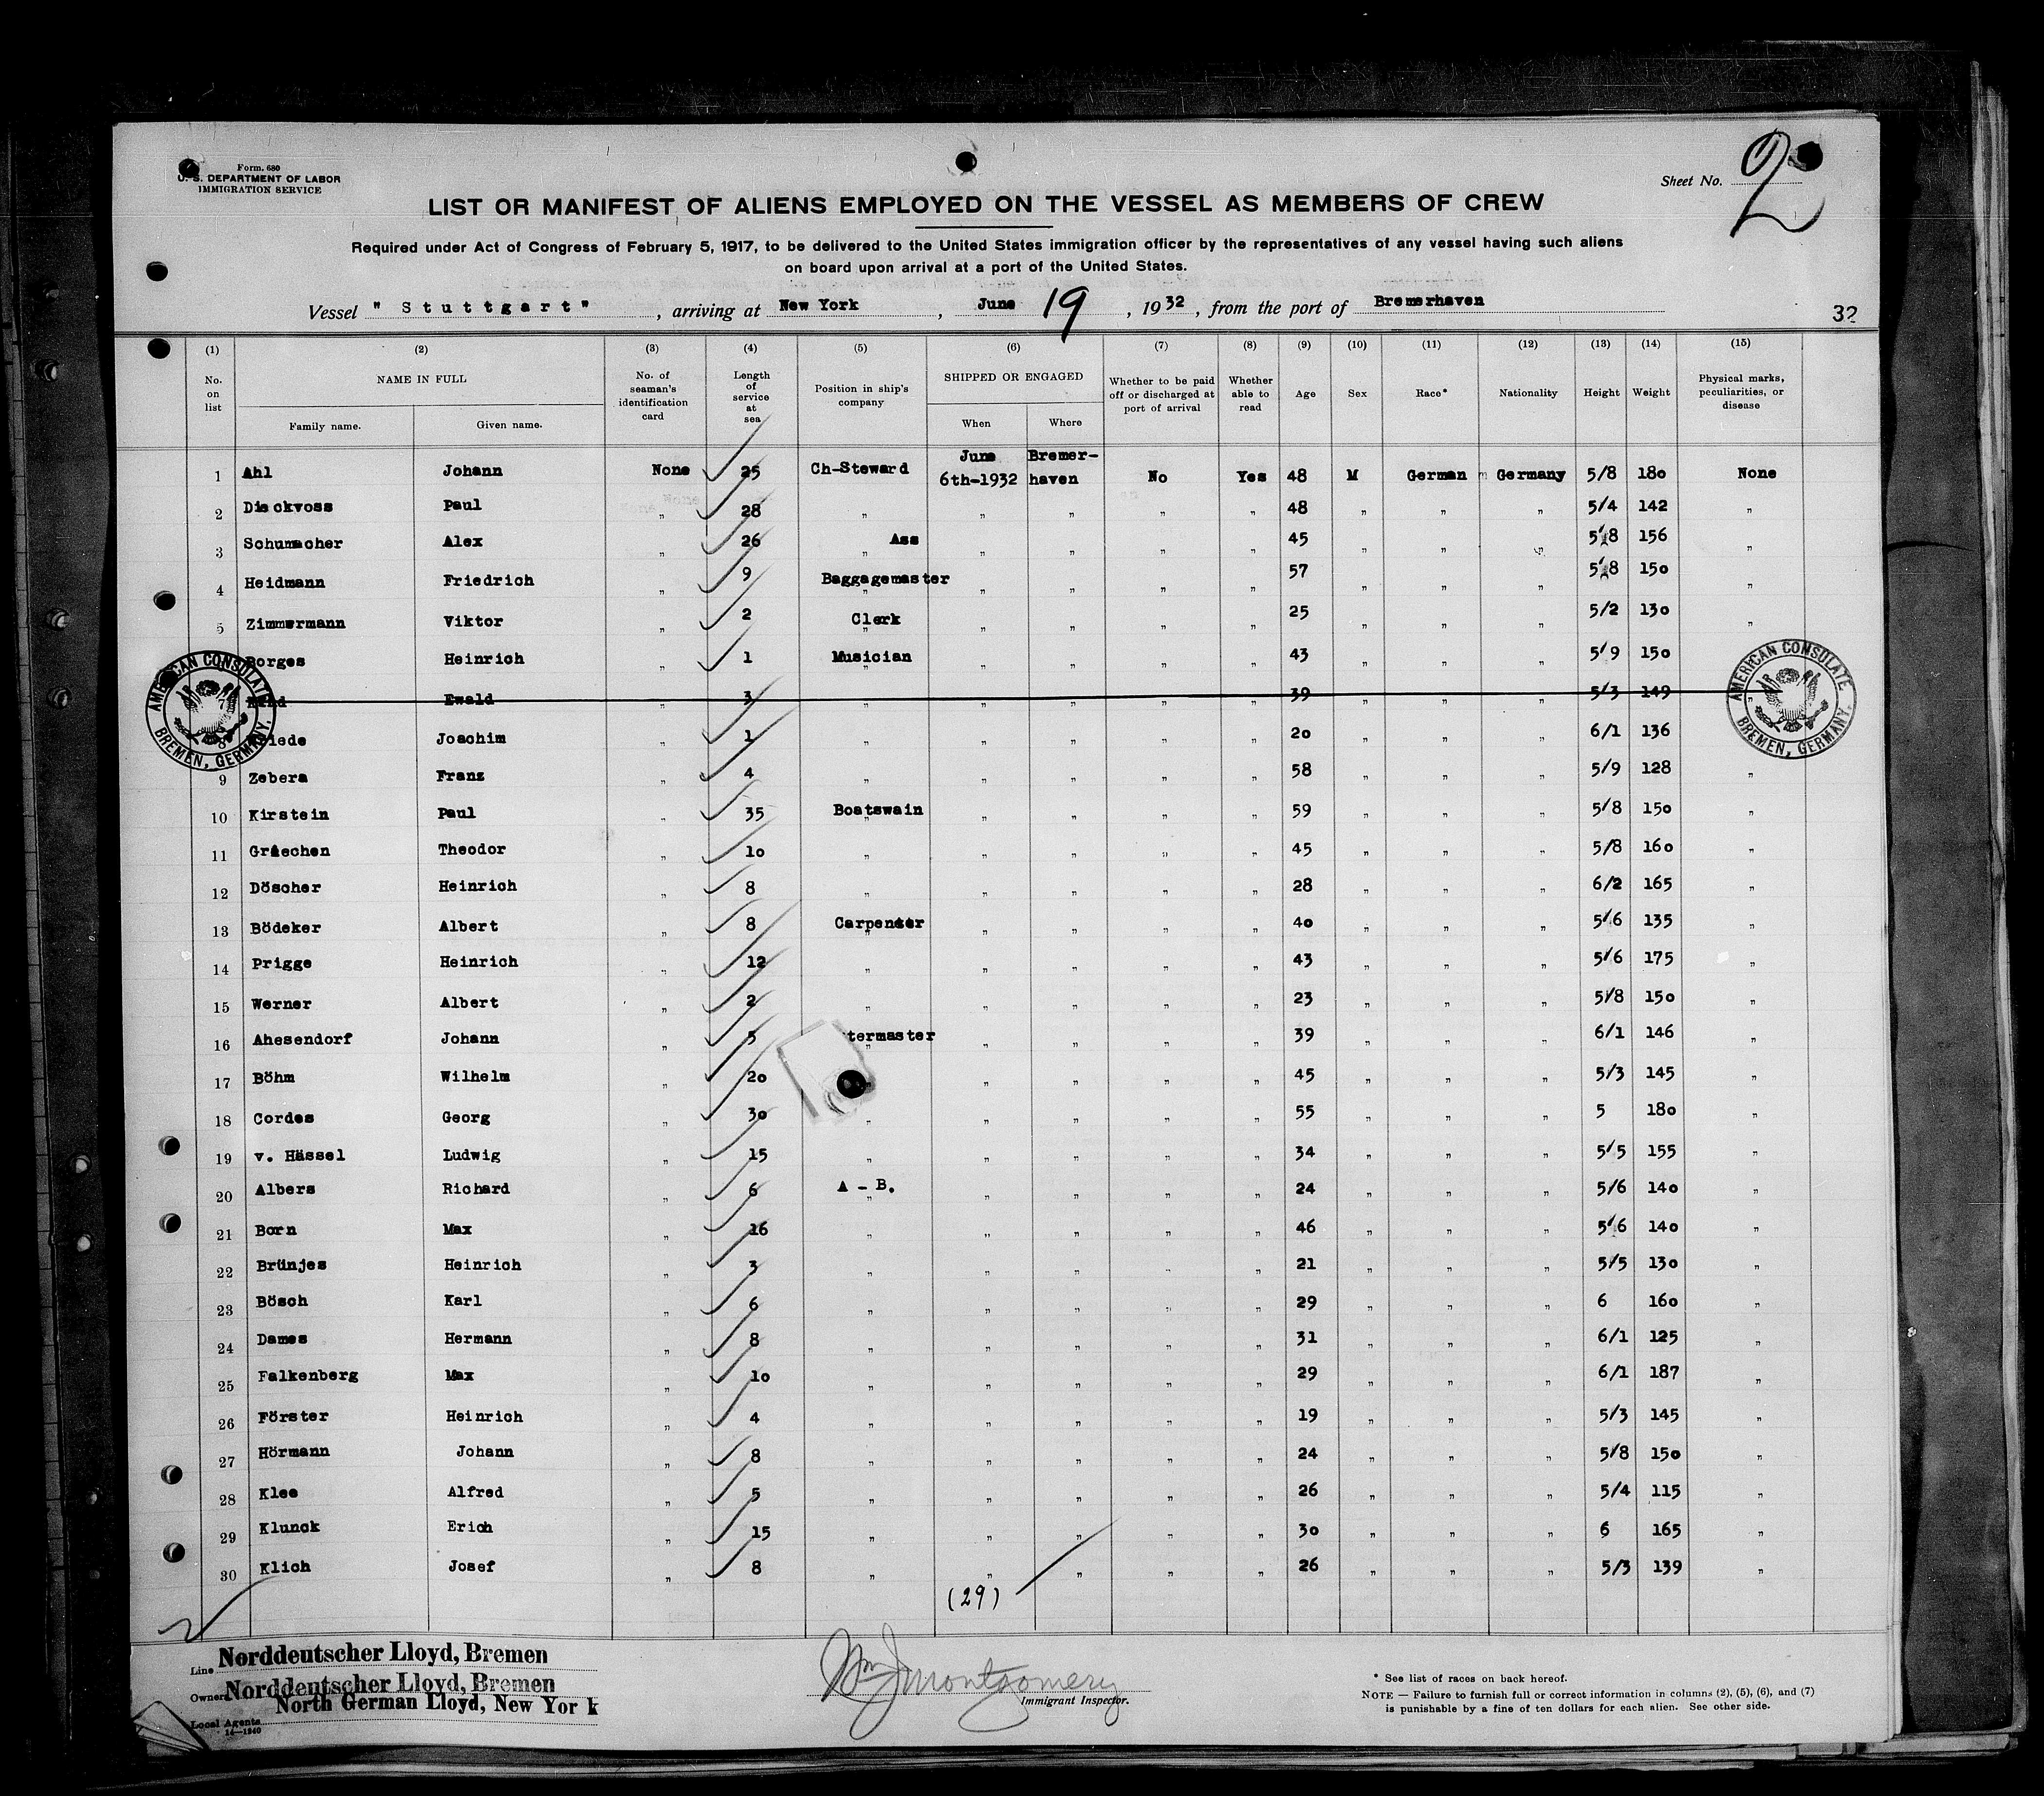 Form. 680
U. S. DEPARTMENT OF LABOR
IMMIGRATION SERVICE
Sheet No. 2
LIST OR MANIFEST OF ALIENS EMPLOYED ON THE VESSEL AS MEMBERS OF CREW
Required under Act of Congress of February 5, 1917, to be delivered to the United States immigration officer by the representatives of any vessel having such aliens
on board upon arrival at a port of the United States.
Vessel "Stuttgart", arriving at New York, June 19, 1932, from the port of Bremerhaven
32
(1) (2) (3) (4) (5) (6) (7) (8) (9) (10) (11) (12) (13) (14) (15)
No. on list NAME IN FULL Family name. Given name. No. of seaman's identification card Length of service at sea Position in ship's company SHIPPED OR ENGAGED When Where Whether to be paid off or discharged at port of arrival Whether able to read Age Sex Race* Nationality Height Weight Physical marks, peculiarities, or disease
1 Ahl Johann None 25 Ch-Steward June 6th-1932 Bremer-haven No Yes 48 M German Germany 5/8 180 None
2 Dieckvoss Paul " 28 " " " " " 48 " " " 5/4 142 "
3 Schumacher Alex " 26 " Ass " " " " 45 " " " 5/8 156 "
4 Heidmann Friedrich " 9 Baggagemaster " " " " 57 " " " 5/8 150 "
5 Zimmermann Viktor " 2 Clerk " " " " 25 " " " 5/2 130 "
Borges Heinrich " 1 Musician " " " " 43 " " " 5/9 150
7 Ewald " 3 " " " " " 39 " " " 5/3 149 "
8 Joachim " 1 " " " " " 20 " " " 6/1 136
9 Zebera Franz " 4 " " " " " 58 " " " 5/9 128 "
10 Kirstein Paul " 35 Boatswain " " " " 59 " " " 5/8 150 "
11 Griechen Theodor " 10 " " " " " 45 " " " 5/8 160 "
12 Döscher Heinrich " 8 " " " " " 28 " " " 6/2 165 "
13 Bödeker Albert " 8 Carpenter " " " " 40 " " " 5/6 135 "
14 Prigge Heinrich " 12 " " " " " 43 " " " 5/6 175 "
15 Werner Albert " 2 " " " " " 23 " " " 5/8 150 "
16 Ahesendorf Johann " 5 termaster " " " " 39 " " " 6/1 146 "
17 Böhm Wilhelm " 20 " " " " " 45 " " " 5/3 145 "
18 Cordes Georg " 30 " " " " " 55 " " " 5 180 "
19 v. Hässel Ludwig " 15 " " " " " 34 " " " 5/5 155 "
20 Albers Richard " 6 A - B. " " " " 24 " " " 5/6 140 "
21 Born Max " 16 " " " " " 46 " " " 5/6 140 "
22 Brünjes Heinrich " 3 " " " " " 21 " " " 5/5 130 "
23 Bösch Karl " 6 " " " " " 29 " " " 6 160 "
24 Dames Hermann " 8 " " " " " 31 " " " 6/1 125 "
25 Falkenberg Max " 10 " " " " " 29 " " " 6/1 187 "
26 Förster Heinrich " 4 " " " " " 19 " " " 5/3 145 "
27 Hörmann Johann " 8 " " " " " 24 " " " 5/8 150 "
28 Klee Alfred " 5 " " " " " 26 " " " 5/4 115 "
29 Klunck Erich " 15 " " " " " 30 " " " 6 165 "
30 Klich Josef " 8 " " " " " 26 " " " 5/3 139 "
(29)
AMERICAN CONSULATE BREMEN, GERMANY.
AMERICAN CONSULATE BREMEN, GERMANY.
Line Norddeutscher Lloyd, Bremen
Owners Norddeutscher Lloyd, Bremen
Local Agents North German Lloyd, New York
14—1240
Wm J Montgomery
Immigrant Inspector.
* See list of races on back hereof.
NOTE — Failure to furnish full or correct information in columns (2), (5), (6), and (7)
is punishable by a fine of ten dollars for each alien. See other side.